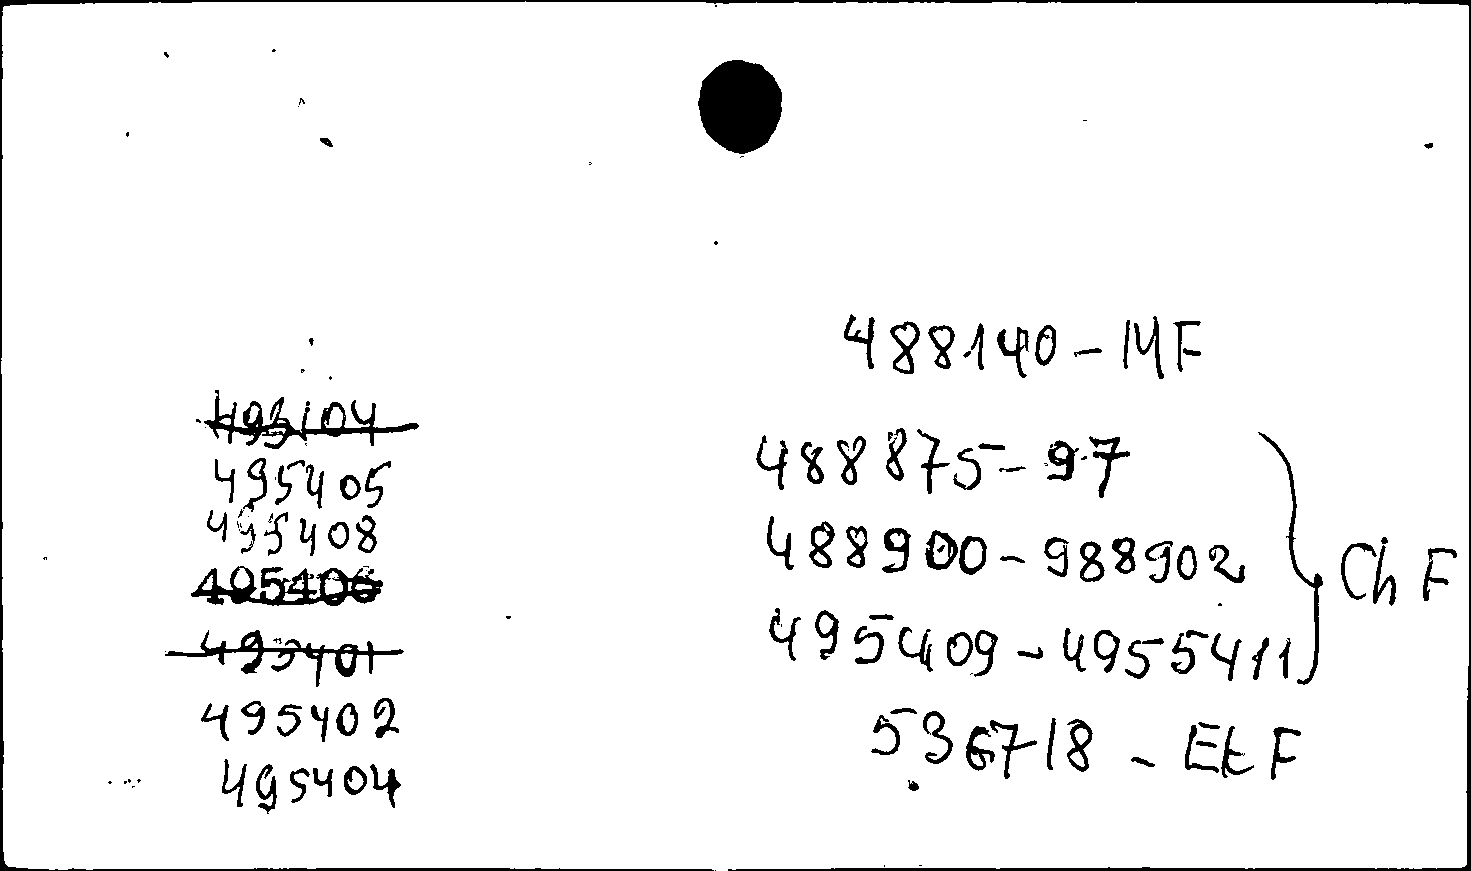 495405
495408
495406
495401
495402
495404
488140 - MF
488875 - 97
488900 - 988902
495409 - 4955411
Ch F
536718 - EtF